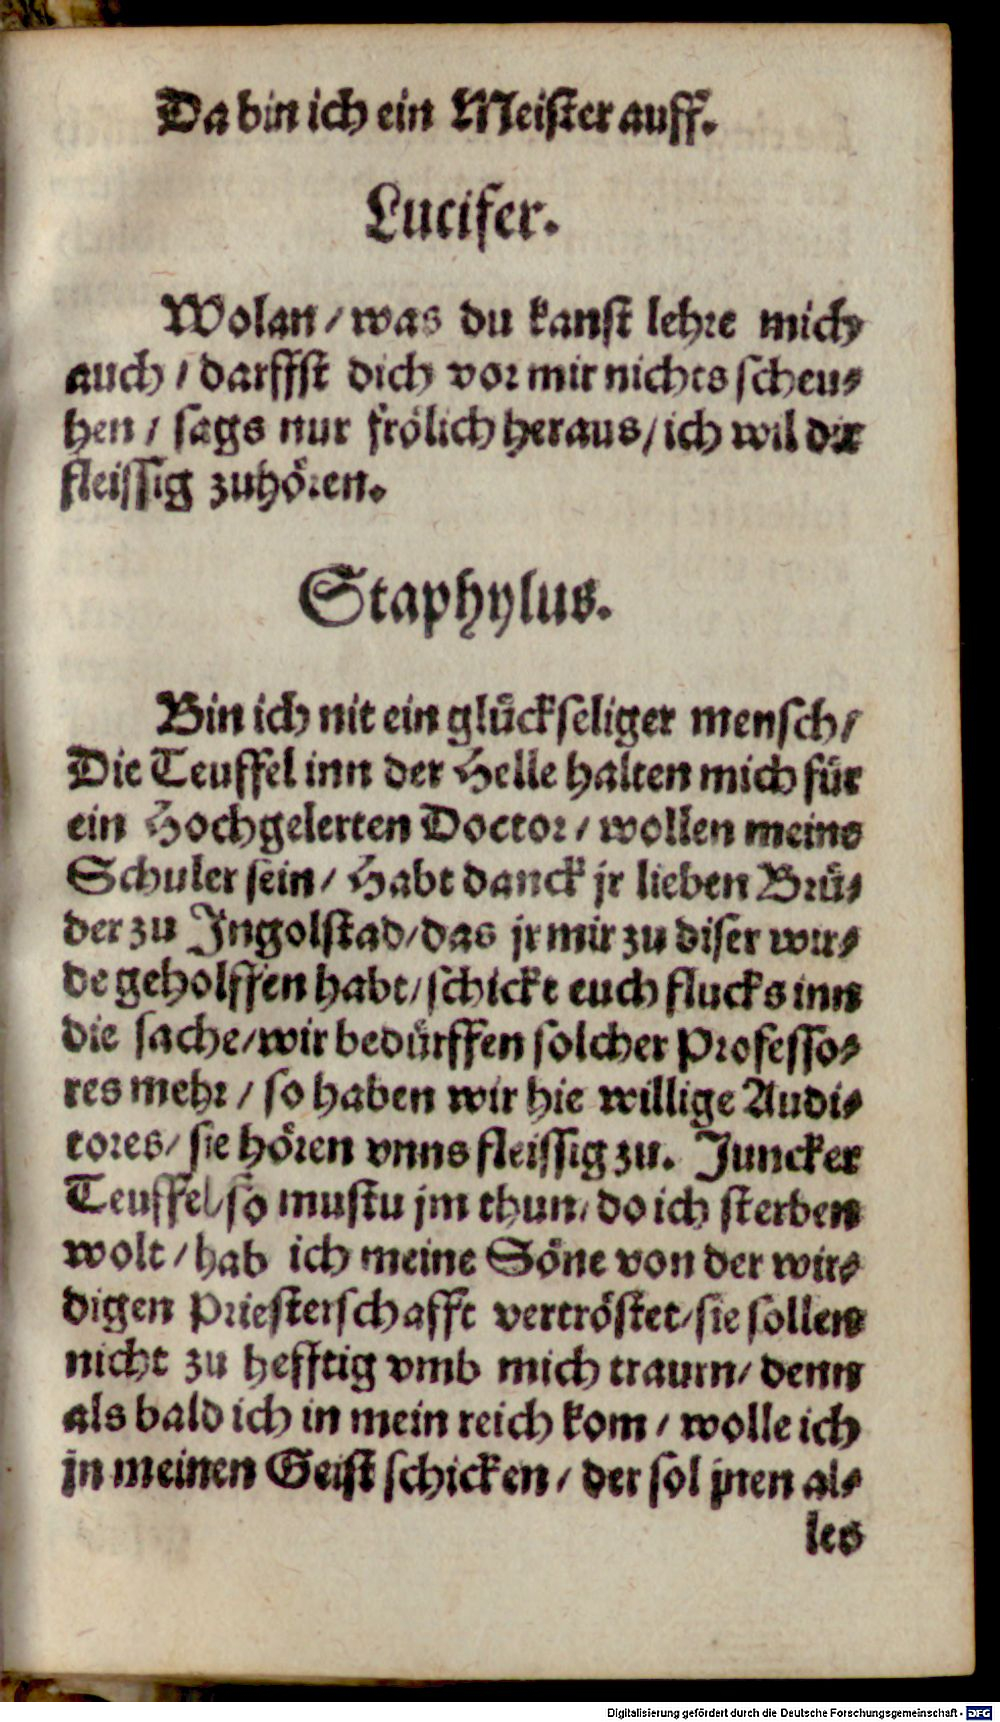 Da bin ich ein Meister auff.
Lucifer.
Wolan / was du kanst lehre mich
auch / darffst dich vor mir nichts scheu-
hen / sags nur frölich heraus / ich wil dir
fleissig zuhören.
Staphylus.
Bin ich nit ein glückseliger mensch /
Die Teuffel inn der Helle halten mich für
ein Hochgelerten Doctor / wollen meine
Schuler sein / Habt danck jr lieben Brü-
der zu Ingolstad / das jr mir zu diser wir-
de geholffen habt / schickt euch flucks inn
die sache / wir bedürffen solcher Professo-
res mehr / so haben wir hie willige Audi-
tores / sie hören vnns fleissig zu. Juncker
Teuffel / so mustu jm thun / do ich sterben
wolt / hab ich meine Söne von der wir-
digen Priesterschafft vertröstet / sie sollen
nicht zu hefftig vmb mich traurn / denn
als bald ich in mein reich kom / wolle ich
jn meinen Geist schicken / der sol jnen al-
les
Digitalisierung gefördert durch die Deutsche Forschungsgemeinschaft - DFG